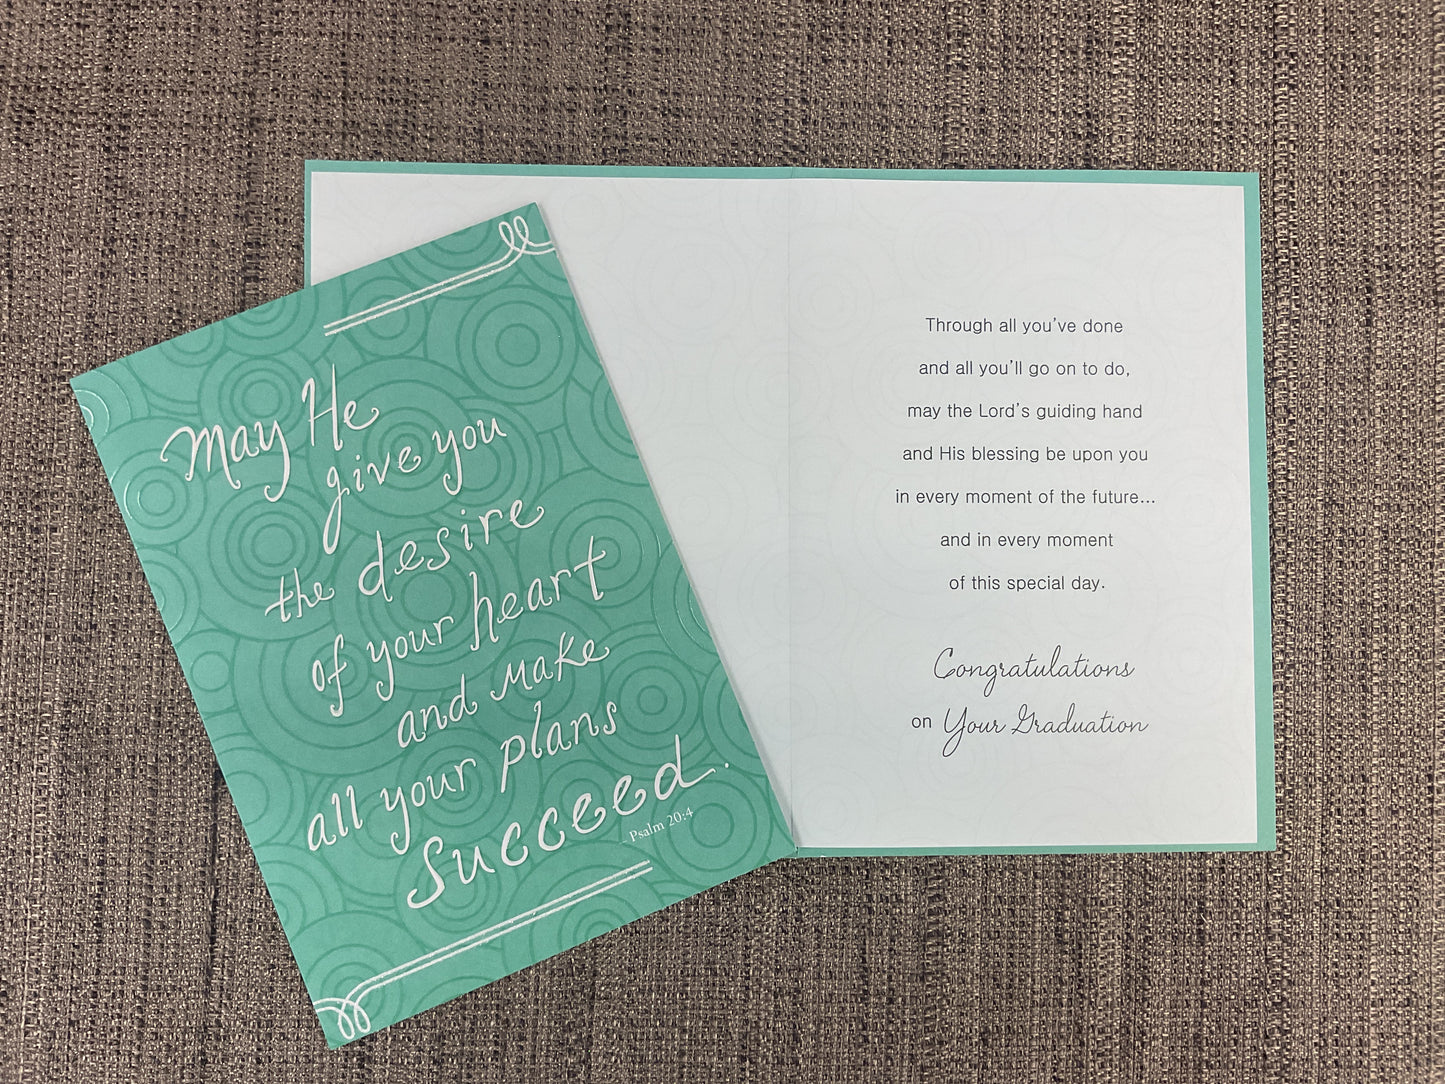 May He
give you
the desire
of your heart
and make
all your plans
succeed.
- Psalm 20:4
Through all you've done
and all you'll go on to do,
may the Lord's guiding hand
and His blessing be upon you
in every moment of the future...
and in every moment
of this special day.
Congratulations
on Your Graduation